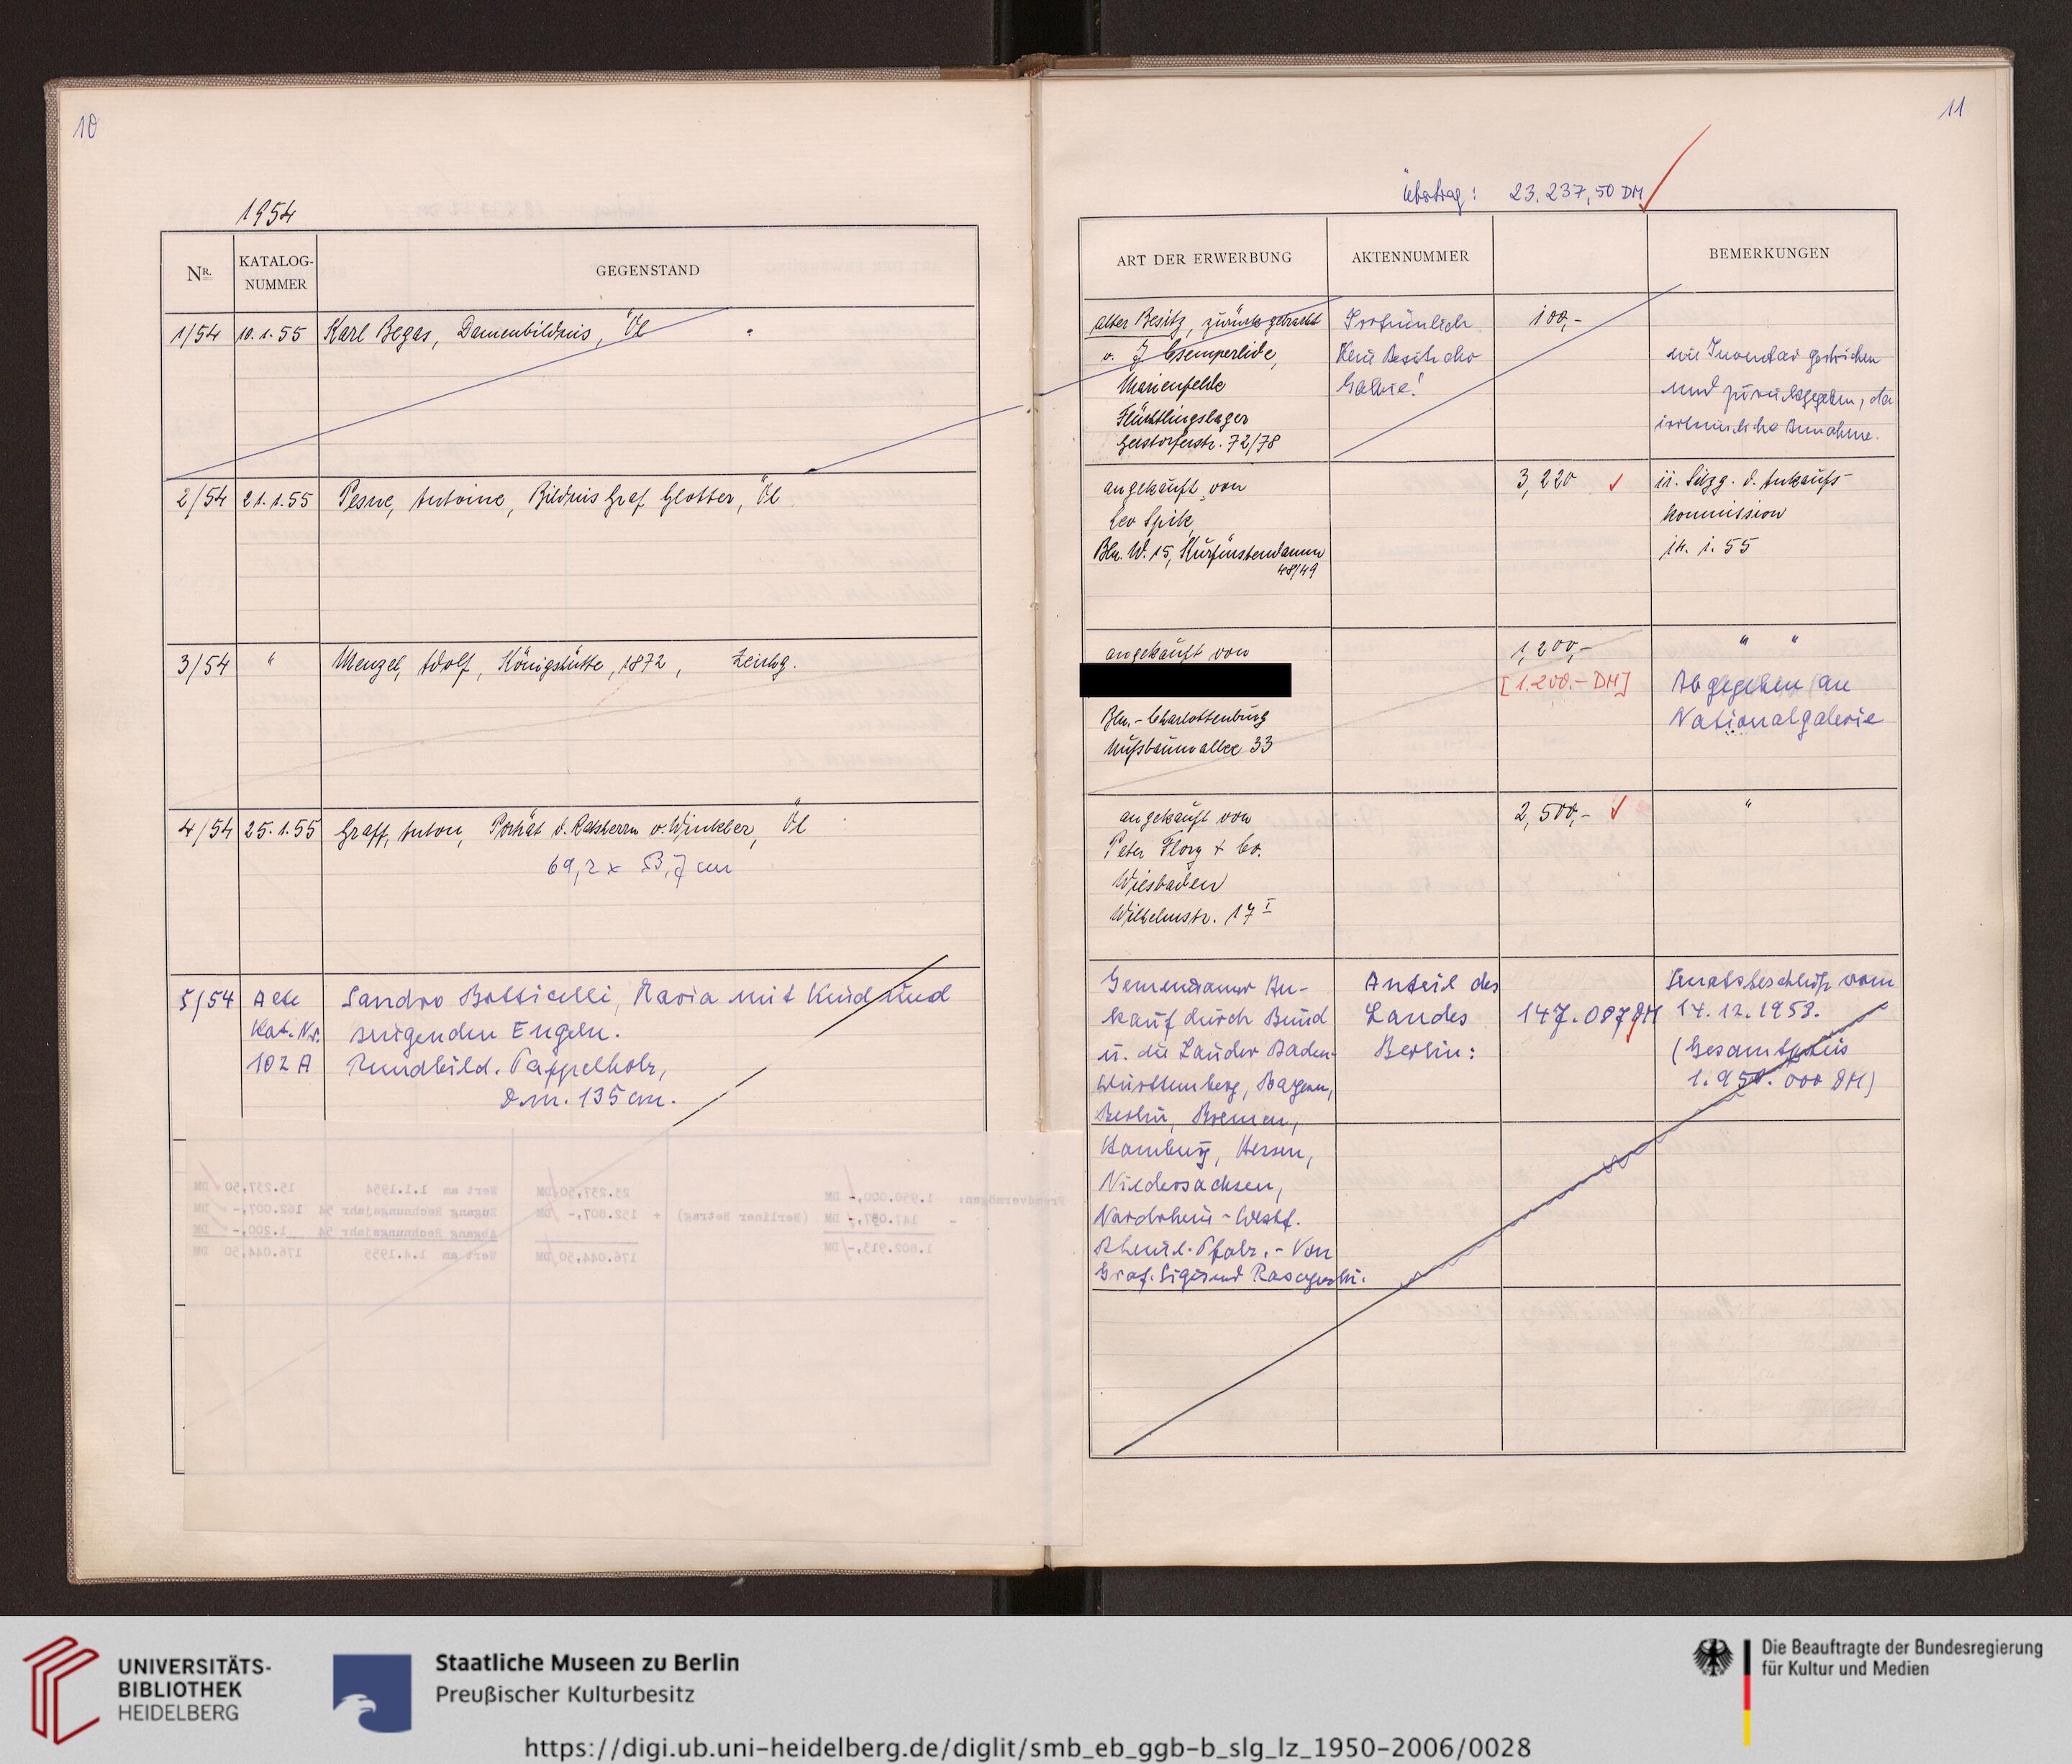 10
1954
NR.
KATALOG-
NUMMER
GEGENSTAND
1/54 10.1.55 Karl Begas, Damenbildnis, Öl
2/54 21.1.55 Pesne, Antoine, Bildnis Graf Glotter, Öl
3/54 " Menzel, Adolf, Königshütte, 1872, Zeichg.
4/54 25.1.55 Graff, Anton, Porträt d. Ratsherrn v. Winkler, Öl
69,2 x 53,7 cm
5/54 Alte Sandro Botticelli, Maria mit Kind und
Kat. Nr. singenden Engeln.
102 A Rundbild. Pappelholz,
Dm. 135 cm.
11
Übertrag: 23.237,50 DM
ART DER ERWERBUNG
AKTENNUMMER
BEMERKUNGEN
alter Besitz, zurückgebracht
v. J.
Marienfelde
Flüchtlingslager
72/78
Irrtümlich
Kein Besitz der
Galerie!
100,-
im Inventar gestrichen
und zurückgegeben, da
irrtümliche Annahme.
angekauft von
Leo Spik,
Bln. W. 15, Kurfürstendamm
48/49
3,220
II. Sitzg. d. Ankaufs-
kommission
14. 1. 55
angekauft von
Bln.-Charlottenburg
Nußbaumallee 33
1,200,-
[1.200.- DM]
" "
Abgegeben an
Nationalgalerie
angekauft von
Peter Flory & Co.
Wiesbaden
Wilhelmstr. 17 I
2,500,-
"
Gemeinsamer An-
kauf durch Bund
u. die Länder Baden-
Württemberg, Bayern,
Berlin, Bremen,
Hamburg, Hessen,
Niedersachsen,
Nordrhein-Westf.
Rheinl.-Pfalz.- Von
Graf. Sigismund Raczynski.
Anteil des
Landes
Berlin:
147.087 DM
Senatsbeschluß vom
14.12.1953.
(Gesamtpreis
1.950.000 DM)
UNIVERSITÄTS-
BIBLIOTHEK
HEIDELBERG
Staatliche Museen zu Berlin
Preußischer Kulturbesitz
Die Beauftragte der Bundesregierung
für Kultur und Medien
https://digi.ub.uni-heidelberg.de/diglit/smb_eb_ggb-b_slg_lz_1950-2006/0028